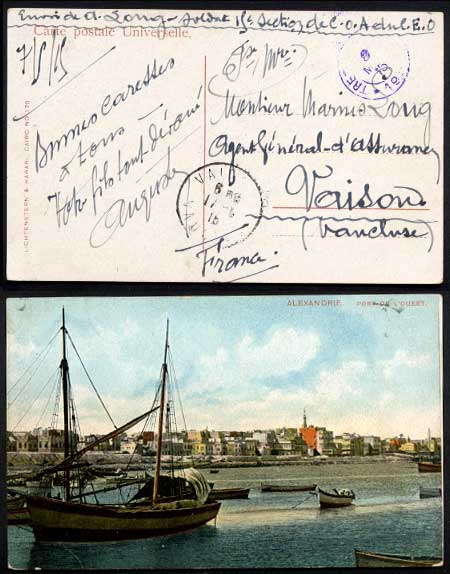 Envoi de A. Long - Soldat 15e Section de C.O.A du C.E.O
Carte postale Universelle.
7/5/15
Fr. Mre
Bonnes caresses
à tous
Votre fils tout dévoué
Auguste
Monsieur Marius Long
Agent Général d'Assurances
Vaison
(Vaucluse)
France
TRE
8
15
VAI
LICHTENSTERN & HARARI, CAIRO NO. 170
ALEXANDRIE. PORT DE L'OUEST.